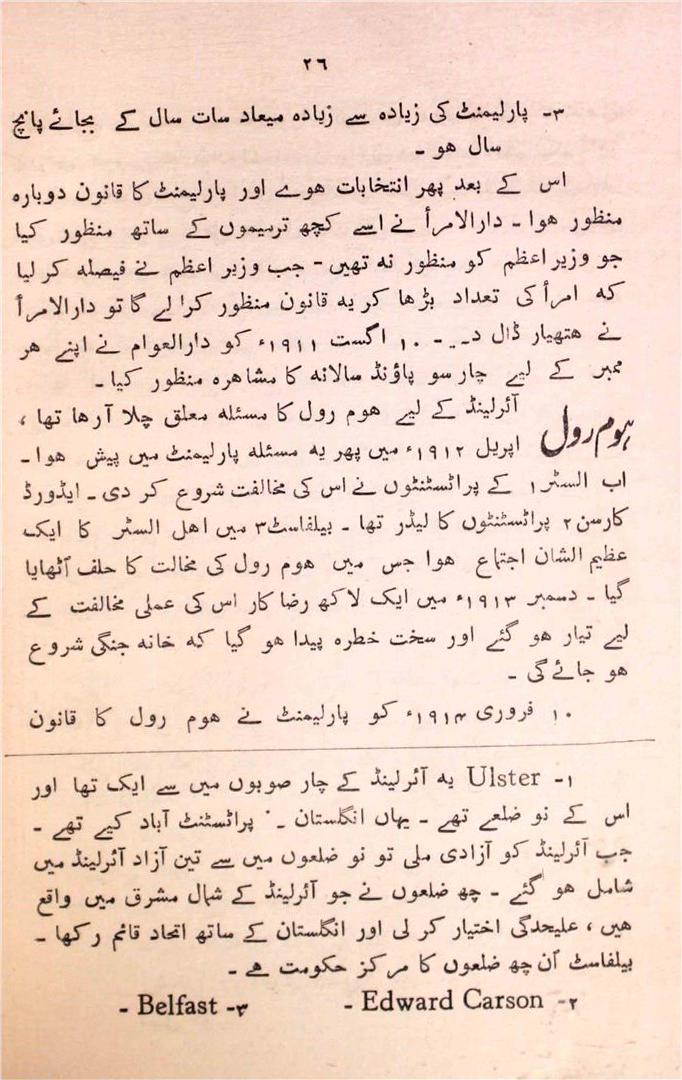 ۲۶
۳- پارلیمنٹ کی زیادہ سے زیادہ میعاد سات سال کے بجائے پانچ
سال ہو -
اس کے بعد پھر انتخابات ہوے اور پارلیمنٹ کا قانون دوبارہ
منظور ہوا - دارالامرأ نے اسے کچھ ترمیموں کے ساتھ منظور کیا
جو وزیر اعظم کو منظور نہ تھیں - جب وزیر اعظم نے فیصلہ کر لیا
کہ امرأ کی تعداد بڑھا کر یہ قانون منظور کرا لے گا تو دارالامرأ
نے ہتھیار ڈال - ۱۰ اگست ۱۹۱۱ء کو دارالعوام نے اپنے ہر
ممبر کے لیے چار سو پاؤنڈ سالانہ کا مشاہرہ منظور کیا -
ہوم رول
آئرلینڈ کے لیے ہوم رول کا مسئلہ معلق چلا آرہا تھا ،
اپریل ۱۹۱۲ء میں پھر یہ مسئلہ پارلیمنٹ میں پیش ہوا -
اب السٹر۱ کے پراٹسٹنٹوں نے اس کی مخالفت شروع کر دی - ایڈورڈ
کارسن۲ پراٹسٹنٹوں کا لیڈر تھا - بیلفاسٹ۳ میں اہل السٹر کا ایک
عظیم الشان اجتماع ہوا جس میں ہوم رول کی مخالت کا حلف اُٹھایا
گیا - دسمبر ۱۹۱۳ء میں ایک لاکھ رضا کار اس کی عملی مخالفت کے
لیے تیار ہو گئے اور سخت خطرہ پیدا ہو گیا کہ خانہ جنگی شروع
ہو جائے گی -
۱۰ فروری ۱۹۱۴ء کو پارلیمنٹ نے ہوم رول کا قانون
۱- Ulster یہ آئرلینڈ کے چار صوبوں میں سے ایک تھا اور
اس کے نو ضلعے تھے - یہاں انگلستان پراٹسٹنٹ آباد کیے تھے -
جب آئرلینڈ کو آزادی ملی تو نو ضلعوں میں سے تین آزاد آئرلینڈ میں
شامل ہو گئے - چھ ضلعوں نے جو آئرلینڈ کے شمال مشرق میں واقع
ہیں ، علیحدگی اختیار کر لی اور انگلستان کے ساتھ اتحاد قائم رکھا -
بیلفاسٹ اُن چھ ضلعوں کا مرکز حکومت ہے -
۲- Edward Carson - ۳- Belfast -